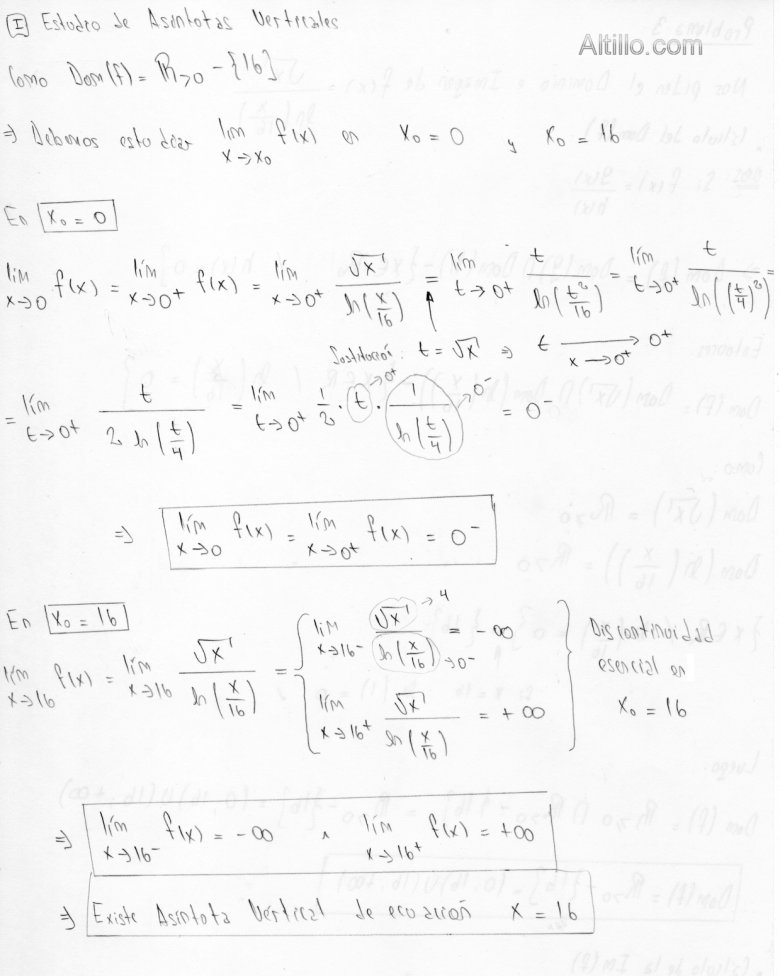 I Estudio de Asíntotas Verticales
Altillo.com
Como Dom(f) = R>0 - {16}
⇒ Debemos estudiar lím x→x₀ f(x) en x₀ = 0 y x₀ = 16
En x₀ = 0
lím x→0 f(x) = lím x→0⁺ f(x) = lím x→0⁺ √x / ln(x/16) = lím t→0⁺ t / ln(t²/16) = lím t→0⁺ t / ln((t/4)²) =
Sustitución: t = √x ⇒ t → 0⁺ x→0⁺
= lím t→0⁺ t / 2 ln(t/4) = lím t→0⁺ 1/2 · t →0⁺ · 1 / ln(t/4) →0⁻ = 0⁻
⇒ lím x→0 f(x) = lím x→0⁺ f(x) = 0⁻
En x₀ = 16
lím x→16 f(x) = lím x→16 √x / ln(x/16) = { lím x→16⁻ √x →4 / ln(x/16) →0⁻ = -∞
lím x→16⁺ √x / ln(x/16) = +∞ }
Discontinuidad
esencial en
x₀ = 16
⇒ lím x→16⁻ f(x) = -∞ ∧ lím x→16⁺ f(x) = +∞
⇒ Existe Asíntota Vertical de ecuación x = 16